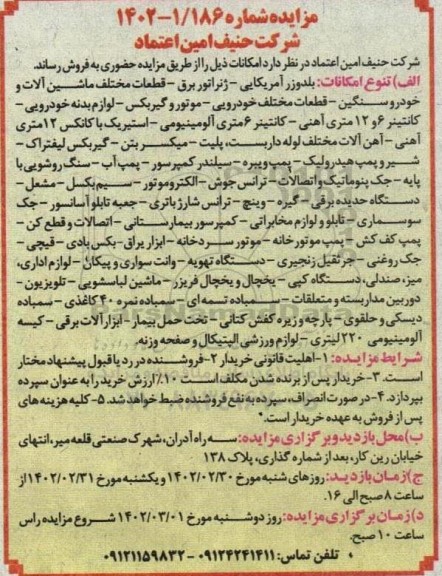 مزایده شماره ۱/۱۸۶-۱۴۰۲
شرکت حنیف امین اعتماد
شرکت حنیف امین اعتماد در نظر دارد امکانات ذیل را از طریق مزایده حضوری به فروش رساند.
الف) تنوع امکانات: بلدوزر آمریکایی - ژنراتور برق - قطعات مختلف ماشین آلات و
خودرو سنگین - قطعات مختلف خودرویی - موتور و گیربکس - لوازم بدنه خودرویی -
کانتینر ۶ و ۱۲ متری آهنی - کانتینر ۶ متری آلومینیومی - استیریک با کانکس ۱۲ متری
آهنی - آهن آلات مختلف لوله داربست، پلیت - میکسر بتن - گیربکس لیفتراک -
شیر و پمپ هیدرولیک - پمپ ویبره - سیلندر کمپرسور - پمپ آب - سنگ روشویی با
پایه - جک پنوماتیک و اتصالات - ترانس جوش - الکتروموتور - سیم بکسل - مشعل -
دستگاه حدیده برقی - گیره - وینچ - ترانس شارژ باتری - جعبه تابلو آسانسور - جک
سوسماری - تابلو و لوازم مخابراتی - کمپرسور بیمارستانی - اتصالات و قطع کن -
پمپ کف کش - پمپ موتورخانه - موتور سردخانه - ابزار یراق - بکس بادی - قیچی -
جک روغنی - جرثقیل زنجیری - دستگاه تهویه - وانت سواری و پیکان - لوازم اداری،
میز، صندلی، دستگاه کپی - یخچال و یخچال فریزر - ماشین لباسشویی - تلویزیون -
دوربین مداربسته و متعلقات - سمباده تسمه ای - سمباده نمره ۴۰ کاغذی - سمباده
دیسکی و حلقوی - پارچه و زیره کفش کتانی - تخت حمل بیمار - ابزارآلات برقی - کیسه
آلومینیومی ۲۲۰ لیتری - لوازم ورزشی الپتیکال و صفحه وزنه
شرایط مزایده: ۱- اهلیت قانونی خریدار ۲- فروشنده در رد یا قبول پیشنهاد مختار
است. ۳- خریدار پس از برنده شدن مکلف است ۱۰٪ ارزش خرید را به عنوان سپرده
بپردازد. ۴- در صورت انصراف، سپرده به نفع فروشنده ضبط خواهد شد. ۵- کلیه هزینه های
پس از فروش به عهده خریدار است.
ب) محل بازدید و برگزاری مزایده: سه راه آدران، شهرک صنعتی قلعه میر، انتهای
خیابان رین کار، بعد از شماره گذاری، پلاک ۱۳۸
ج) زمان بازدید: روزهای شنبه مورخ ۱۴۰۲/۰۲/۳۰ و یکشنبه مورخ ۱۴۰۲/۰۲/۳۱ از
ساعت ۸ صبح الی ۱۶.
د) زمان برگزاری مزایده: روز دوشنبه مورخ ۱۴۰۲/۰۳/۰۱ شروع مزایده راس
ساعت ۱۰ صبح.
تلفن تماس: ۰۹۱۲۴۲۴۱۴۱۱ - ۰۹۱۲۱۱۵۹۸۳۲